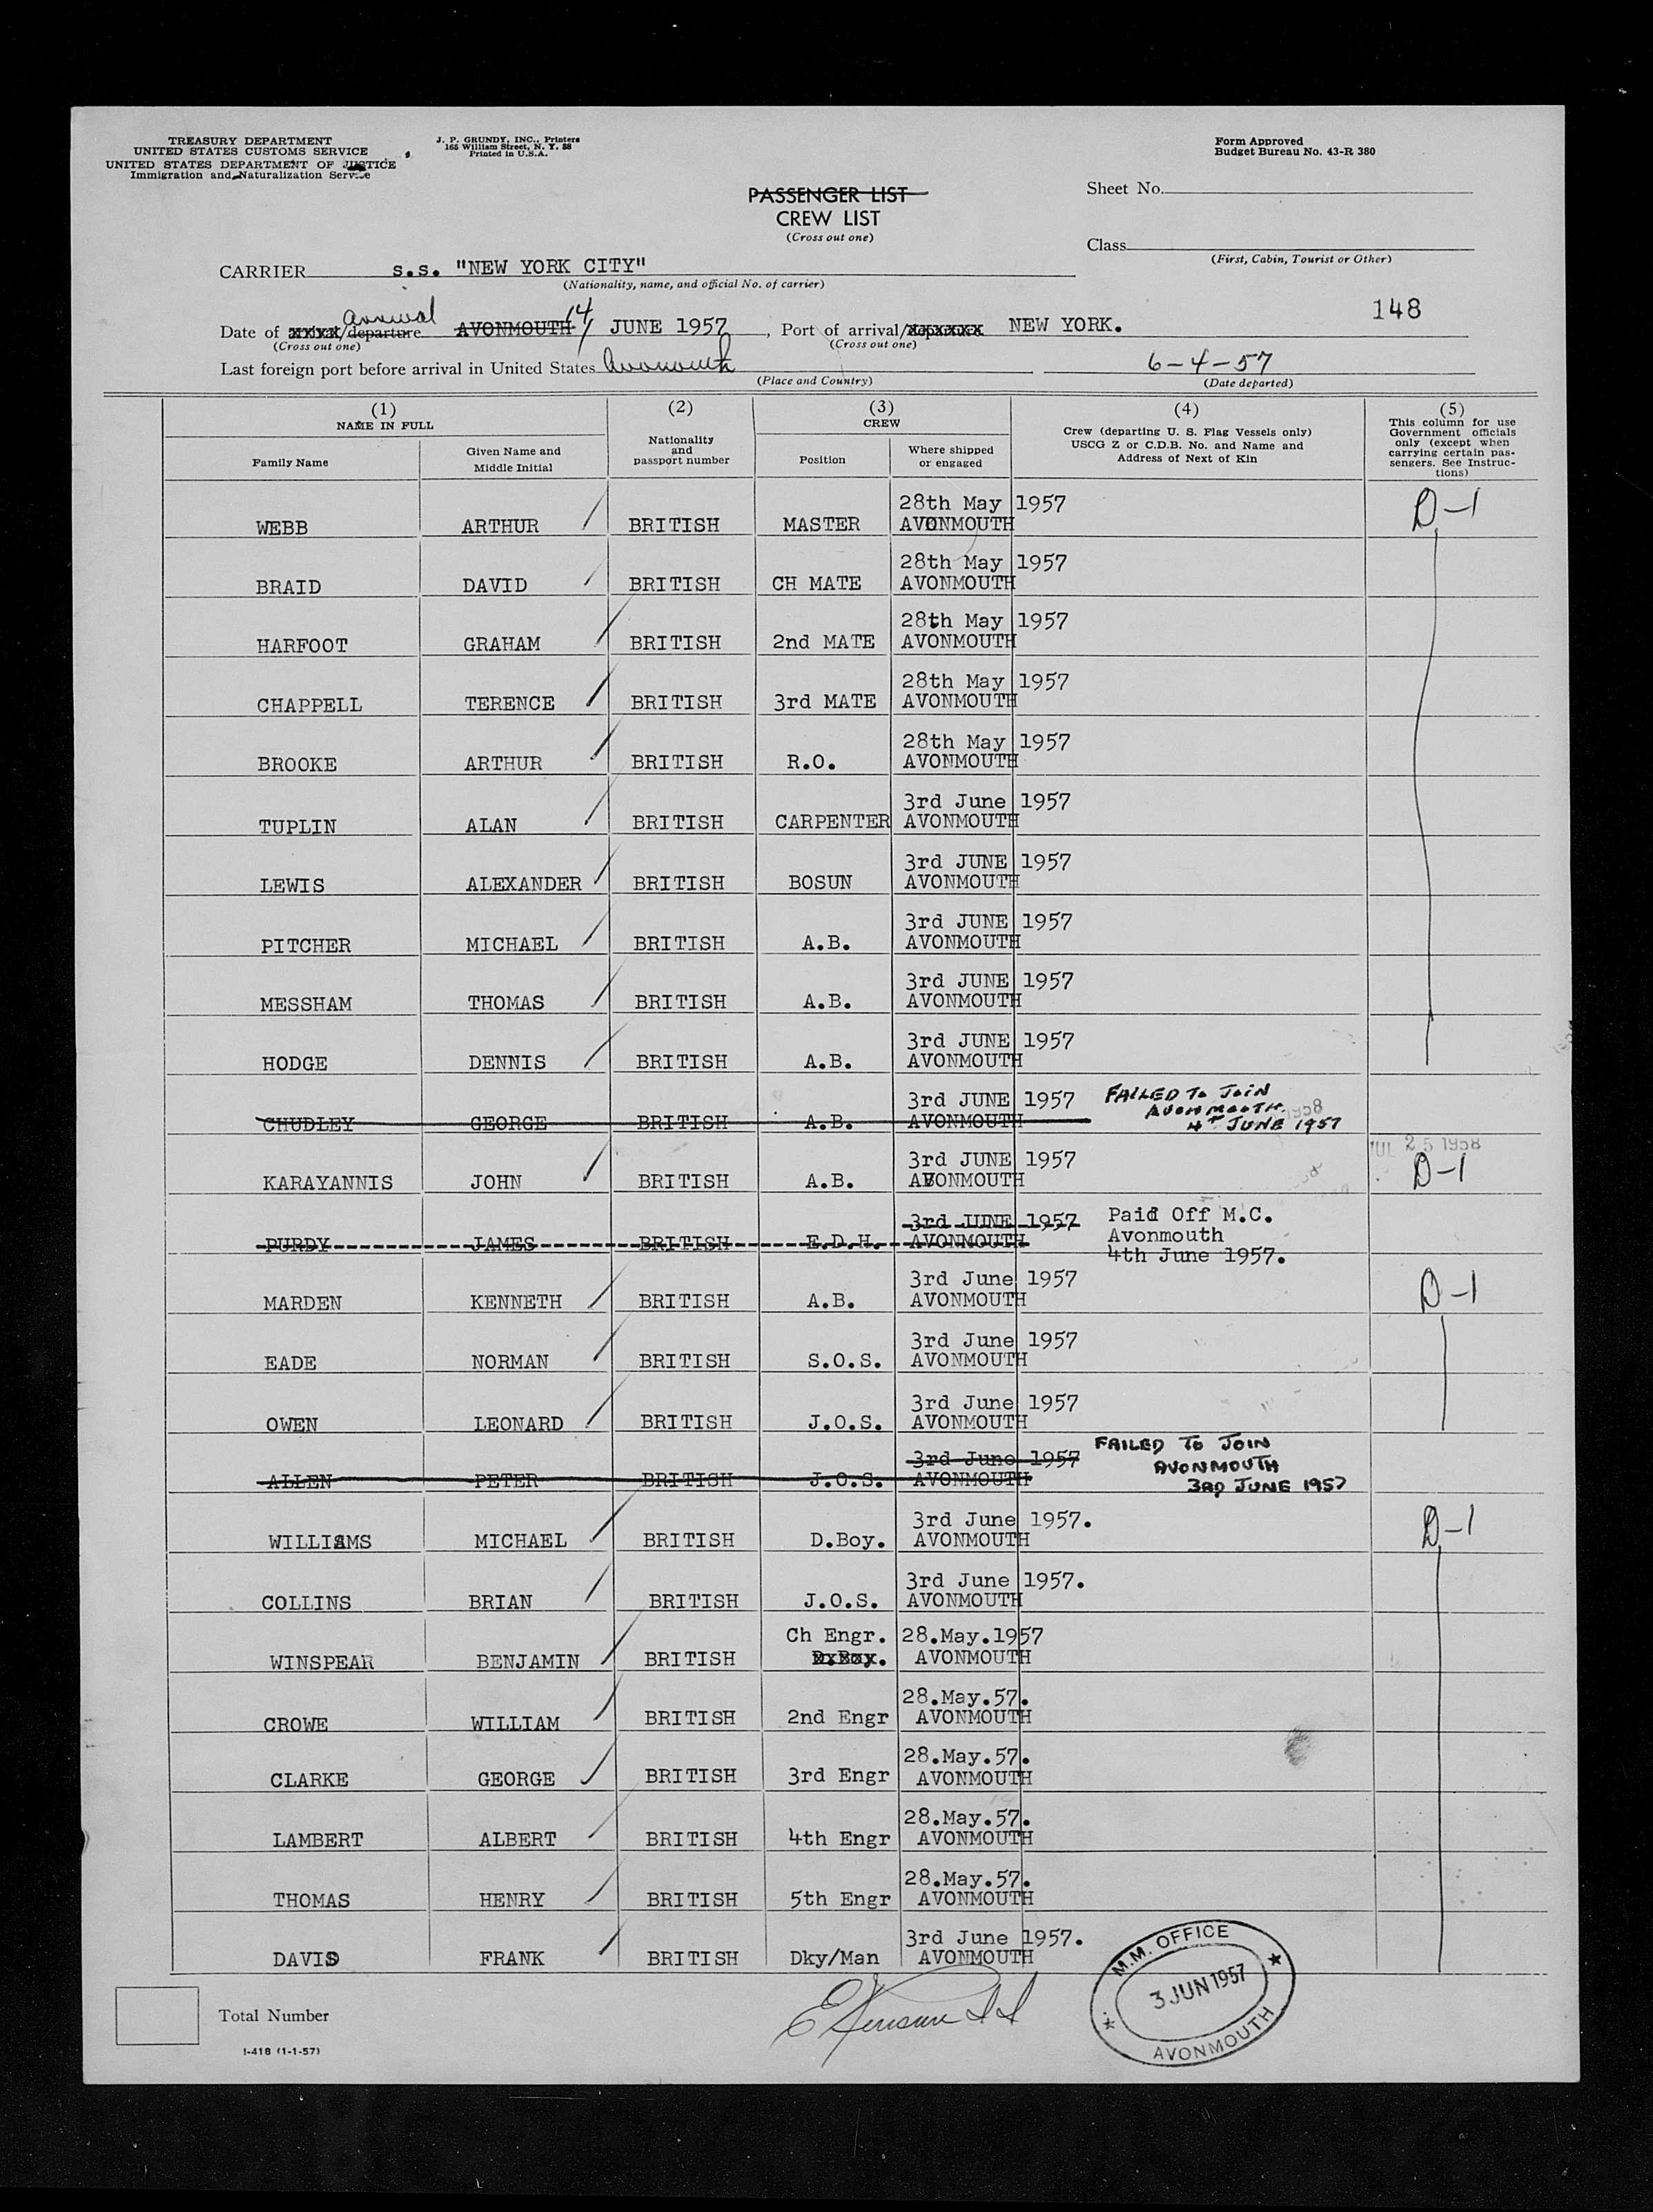 TREASURY DEPARTMENT
UNITED STATES CUSTOMS SERVICE
UNITED STATES DEPARTMENT OF JUSTICE
Immigration and Naturalization Service
J. P. GRUNDY, INC., Printers
165 William Street, N. Y. 38
Printed in U.S.A.
Form Approved
Budget Bureau No. 43-R 380
PASSENGER LIST
CREW LIST
(Cross out one)
Sheet No.
Class
(First, Cabin, Tourist or Other)
CARRIER s.s. "NEW YORK CITY"
(Nationality, name, and official No. of carrier)
148
arrival
Date of /departure AVONMOUTH 14 JUNE 1957, Port of arrival/ NEW YORK.
(Cross out one) (Cross out one)
Last foreign port before arrival in United States Avonmouth 6-4-57
(Place and Country) (Date departed)
(1) NAME IN FULL
Family Name
Given Name and Middle Initial
(2)
Nationality and passport number
(3)
CREW
Position
Where shipped or engaged
(4)
Crew (departing U. S. Flag Vessels only)
USCG Z or C.D.B. No. and Name and
Address of Next of Kin
(5)
This column for use
Government officials
only (except when
carrying certain pas-
sengers. See Instruc-
tions)
28th May 1957 D-1
WEBB ARTHUR BRITISH MASTER AVONMOUTH
28th May 1957
BRAID DAVID BRITISH CH MATE AVONMOUTH
28th May 1957
HARFOOT GRAHAM BRITISH 2nd MATE AVONMOUTH
28th May 1957
CHAPPELL TERENCE BRITISH 3rd MATE AVONMOUTH
28th May 1957
BROOKE ARTHUR BRITISH R.O. AVONMOUTH
3rd June 1957
TUPLIN ALAN BRITISH CARPENTER AVONMOUTH
3rd JUNE 1957
LEWIS ALEXANDER BRITISH BOSUN AVONMOUTH
3rd JUNE 1957
PITCHER MICHAEL BRITISH A.B. AVONMOUTH
3rd JUNE 1957
MESSHAM THOMAS BRITISH A.B. AVONMOUTH
3rd JUNE 1957
HODGE DENNIS BRITISH A.B. AVONMOUTH
3rd JUNE 1957 FAILED TO JOIN
CHUDLEY GEORGE BRITISH A.B. AVONMOUTH AVONMOUTH
4TH JUNE 1957
JUL 25 1958
3rd JUNE 1957 D-1
KARAYANNIS JOHN BRITISH A.B. AVONMOUTH
3rd JUNE 1957 Paid Off M.C.
PURDY JAMES BRITISH E.D.H. AVONMOUTH Avonmouth
4th June 1957.
3rd June 1957 D-1
MARDEN KENNETH BRITISH A.B. AVONMOUTH
3rd June 1957
EADE NORMAN BRITISH S.O.S. AVONMOUTH
3rd June 1957
OWEN LEONARD BRITISH J.O.S. AVONMOUTH
3rd June 1957 FAILED TO JOIN
ALLEN PETER BRITISH J.O.S. AVONMOUTH AVONMOUTH
3RD JUNE 1957
3rd June 1957. D-1
WILLIAMS MICHAEL BRITISH D.Boy. AVONMOUTH
3rd June 1957.
COLLINS BRIAN BRITISH J.O.S. AVONMOUTH
Ch Engr. 28.May.1957
WINSPEAR BENJAMIN BRITISH D.Boy. AVONMOUTH
28.May.57.
CROWE WILLIAM BRITISH 2nd Engr AVONMOUTH
28.May.57.
CLARKE GEORGE BRITISH 3rd Engr AVONMOUTH
28.May.57.
LAMBERT ALBERT BRITISH 4th Engr AVONMOUTH
28.May.57.
THOMAS HENRY BRITISH 5th Engr AVONMOUTH
3rd June 1957.
DAVIS FRANK BRITISH Dky/Man AVONMOUTH
M.M. OFFICE
3 JUN 1957
AVONMOUTH
Total Number
I-418 (1-1-57)